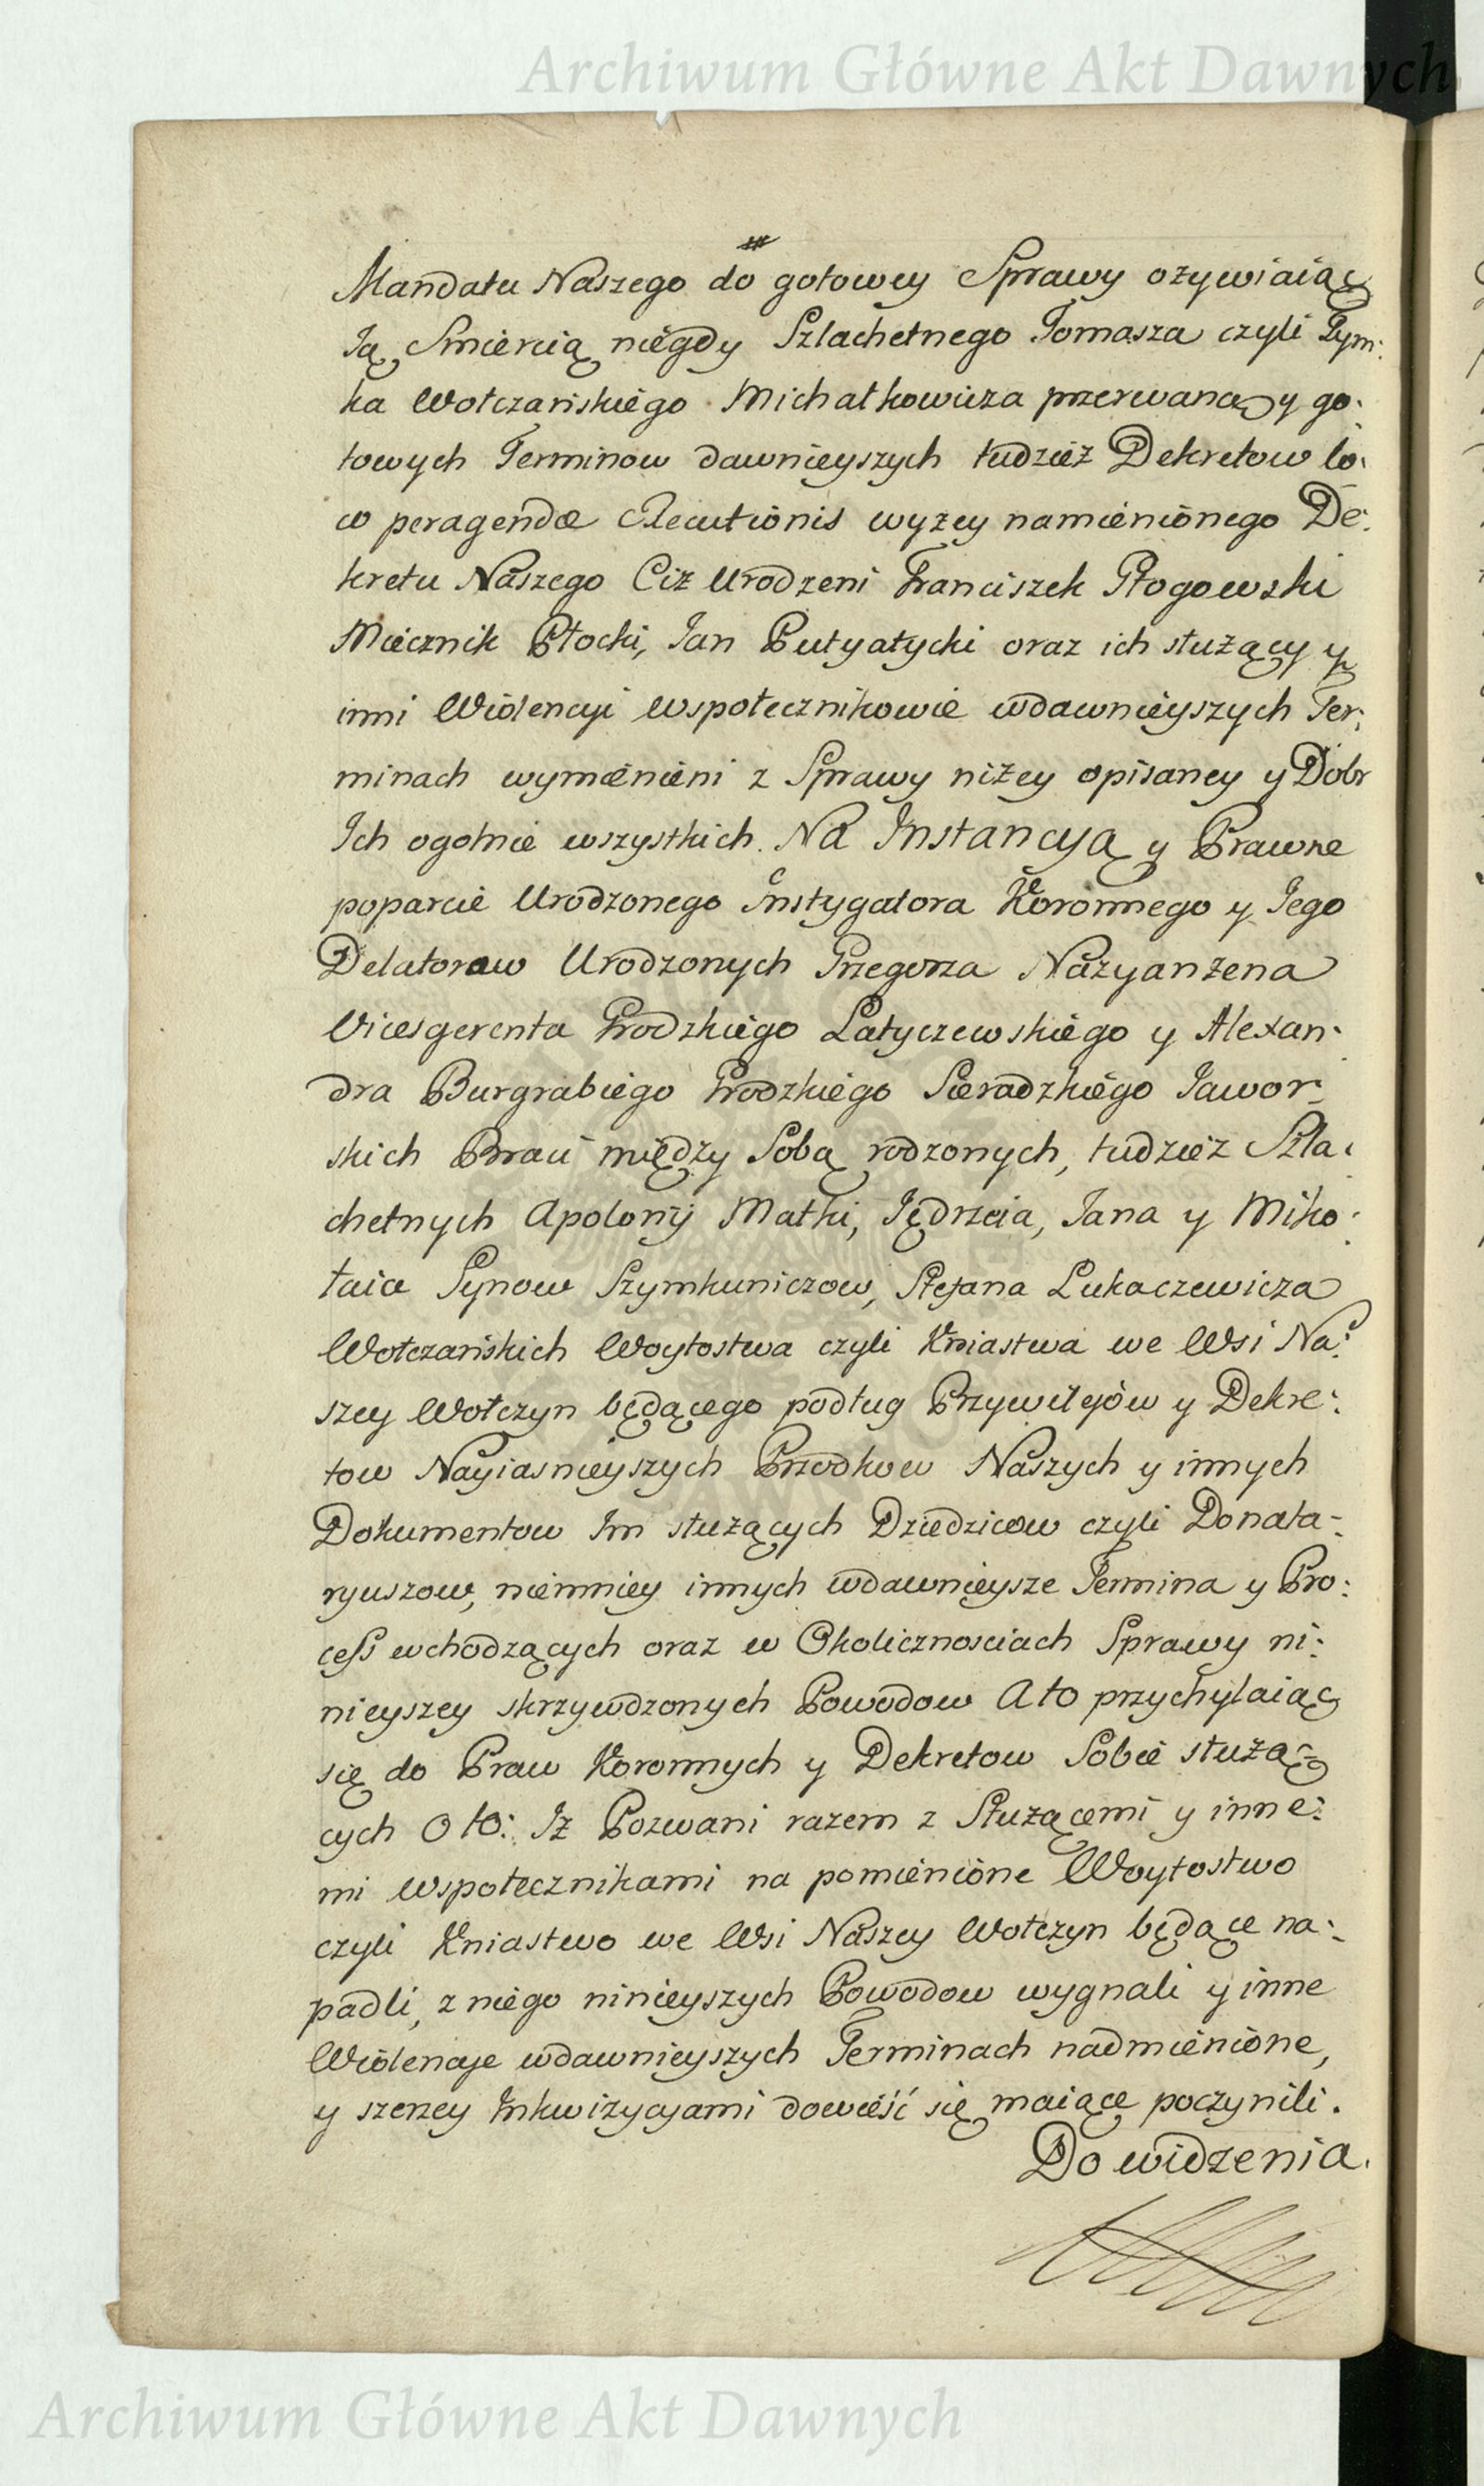 Archiwum Główne Akt Dawnych
Mandatu Naszego do gotowey Sprawy ozywiaiąc
Ią Smiercią niegdy Szlachetnego Tomasza czyli Tym:
ka Wołczańskiego Michałkowicza przerwaną y go:
towych Terminow dawnieyszych tudzież Dekretow lo:
co peragendæ Executionis wyzey namienionego De:
kretu Naszego Ciż Urodzeni Franciszek Głogowski
Miecznik Płocki, Jan Putyatycki oraz ich służący y
inni Wiolencyi Wspołecznikowie wdawnieyszych Ter:
minach wymienieni z Sprawy niżey opisaney y Dobr
Ich ogolnie wszystkich. Na Instancyą y Prawne
poparcie Urodzonego Instygatora Koronnego y Jego
Delatorow Urodzonych Grzegorza Nazyanzena
Vicesgerenta Grodzkiego Latyczewskiego y Alexan:
dra Burgrabiego Grodzkiego Sieradzkiego Jawor:
skich Braci między Sobą rodzonych, tudzież Szla:
chetnych Apolonij Matki, Jędrzeia, Jana y Miko:
łaia Synow Szymkuniczow, Stefana Lukaczewicza
Wołczańskich Woytostwa czyli Kniastwa we Wsi Na:
szey Wołczyn będącego podług Przywileyów y Dekre:
tow Nayiasnieyszych Przodkow Naszych y innych
Dokumentow Im służących Dziedzicow czyli Donata:
ryuszow, niemniey innych wdawnieysze Termina y Pro:
cess wchodzących oraz w Okolicznosciach Sprawy ni:
nieyszey skrzywdzonych Powodow A to przychylaiąc
się do Praw Koronnych y Dekretow Sobie służą:
cych O to: Iż Pozwani razem z Służącemi y inne:
mi Wspołecznikami na pomienione Woytostwo
czyli Kniastwo we Wsi Naszey Wołczyn będące na:
padli, z niego ninieyszych Powodow wygnali y inne
Wiolencye wdawnieyszych Terminach nadmienione,
y szerzey Inkwizycyami dowieść się maiące poczynili.
Do widzenia.
Archiwum Główne Akt Dawnych